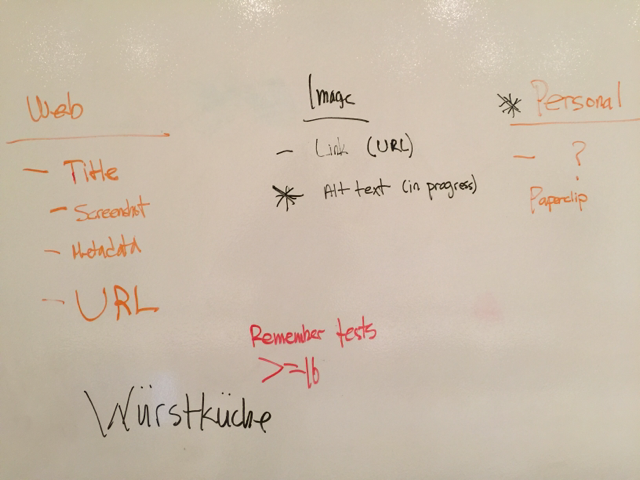 Web
- Title
- Screenshot
- Metadata
- URL
Image
- Link (URL)
* Alt text (in progress)
* Personal
- ?
Paperclip
Remember tests
>=16
Würstküche